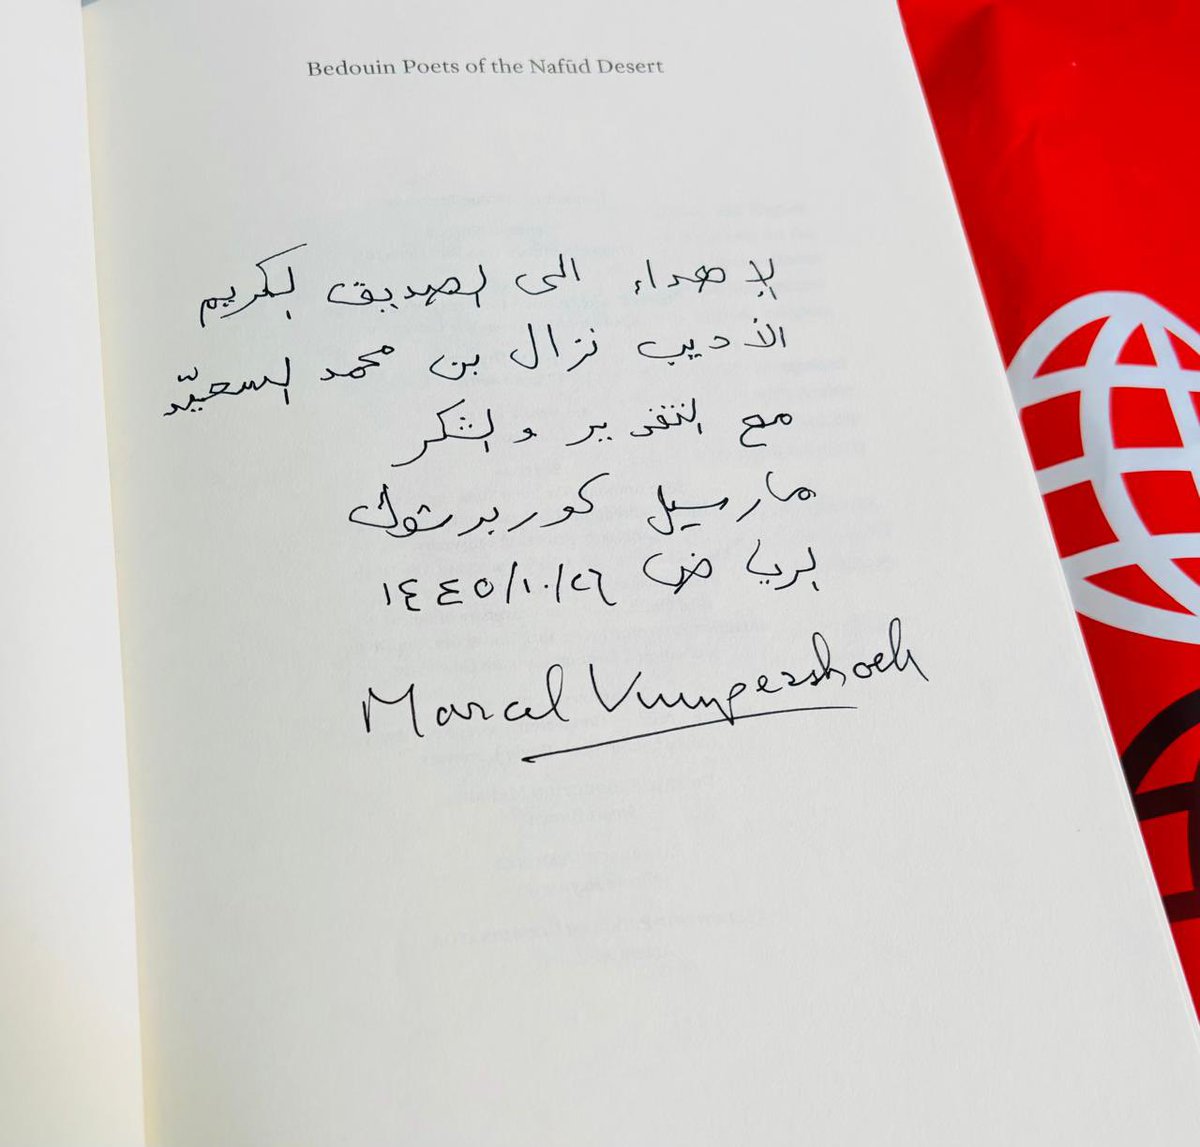 Bedouin Poets of the Nafūd Desert
لإهداء الى الصديق الكريم
الأديب نزال بن محمد السعيّد
مع التقدير و الشكر
مارسيل كوربرشوك
لرياض ١٤٤٥/١٠/٢٦
Marcel Kurpershoek